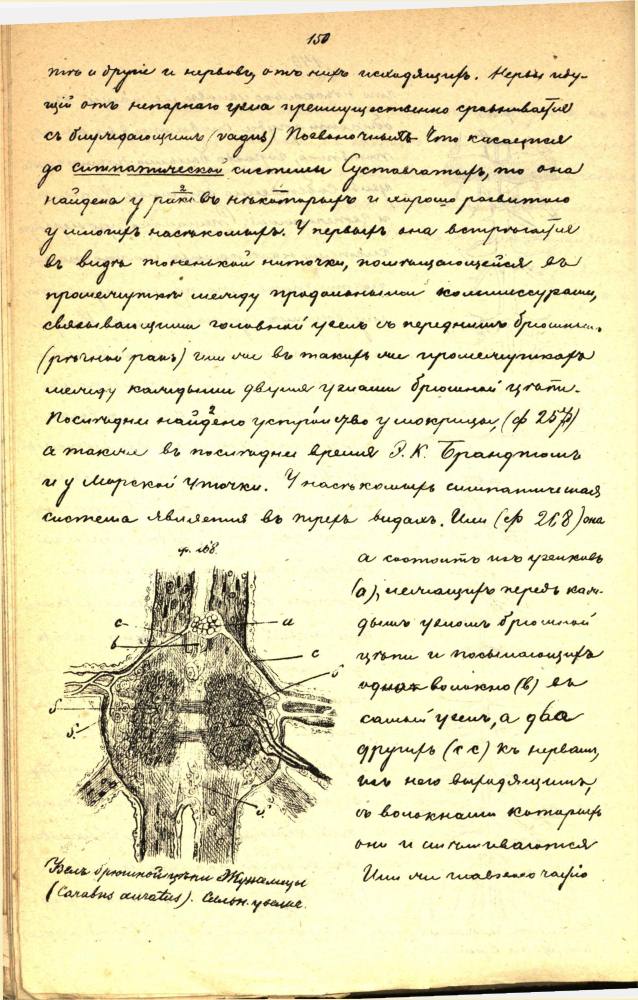 150
и другіе и нервовъ, отъ нихъ исходящихъ. Нервы иду-
щій отъ непарнаго узла преимущественно сравнивается
съ блуждающимъ (vagus) Позвоночныхъ. Что касается
до симпатической системы Суставчатыхъ, то она
найдена у раковъ нѣкоторыхъ и хорошо развитою
у многихъ насѣкомыхъ. У первыхъ она встрѣчается
въ видѣ тоненькой ниточки, помѣщающейся въ
промежуткѣ между продольными коммиссурами,
связывающими головной узелъ съ переднимъ брюшнымъ
(рѣчной ракъ) или же въ такихъ же промежуткахъ
между каждыми двумя узлами брюшной цѣпи.
Послѣднее найдено устройство у мокрицы, (ф 257)
а также въ послѣднее время Э. К. Брандтомъ
и у Морской Уточки. У насѣкомыхъ симпатическая
система является въ трехъ видахъ. Или (ф 268) она
ф. 268.
а состоитъ изъ узелковъ
(а), лежащихъ передъ каж-
дымъ узломъ брюшной
цѣпи и посылающихъ
одно волокно (в) въ
самый узелъ, а два
другихъ (с с) къ нервамъ,
изъ него выходящимъ,
съ волокнами которыхъ
они и смѣшиваются
Или же главною частью
с
а
b
с
б
б
б'
б'
Узелъ брюшной цѣпи Жужелицы
(Carabus auratus). Сильн. увелич.